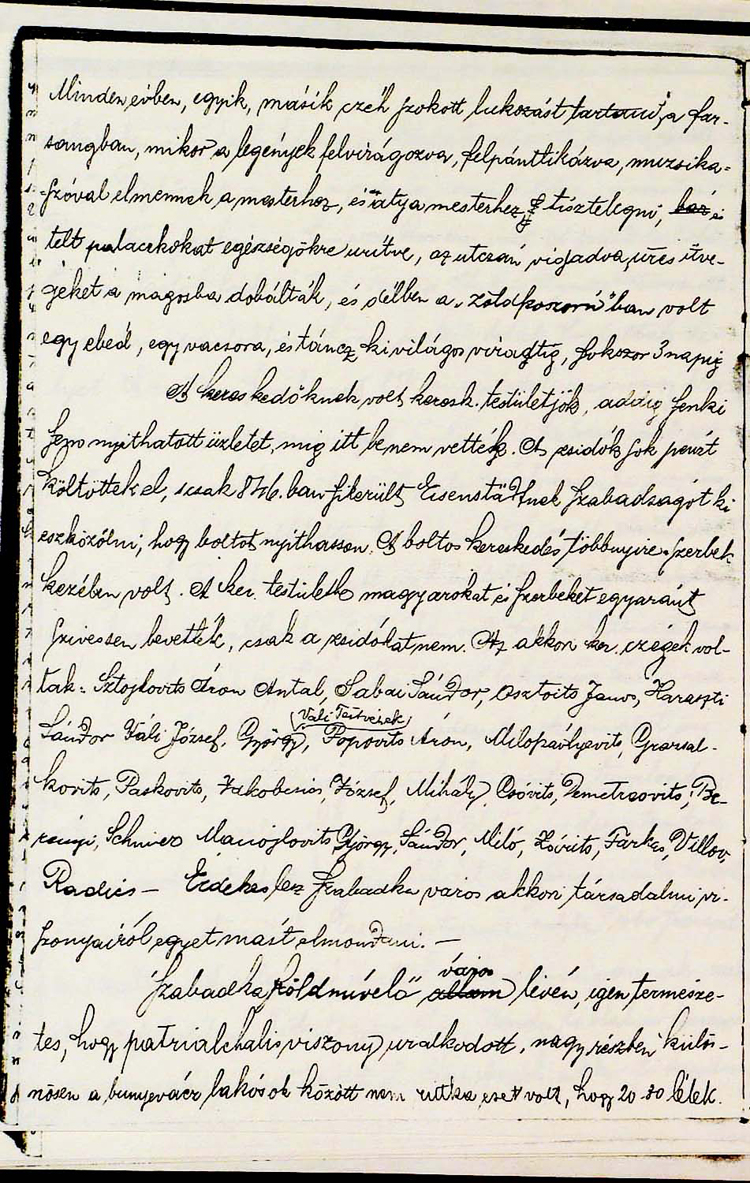 Minden évben, egyik, másik czéh szokott lukozást tartani, a far-
sangban, mikor a legények felvirágozva, felpántlikázva, muzsika-
szóval elmennek a mesterhez, és atya mesterhez tisztelegni,
telt palaczkokat egészségökre urítve, az utczán vigadva, üres üve-
geket a magosba dobálták, és délben a „zöld koszorú"ban volt
egy ebéd, egy vacsora, és táncz kivilágos viradtig, sokszor 3 napig
A kereskedőknek volt keresk. testületjök, addig senki
sem nyithatott üzletet, mig itt be nem vették. A zsidók sok pénzt
költöttek el, s csak 846.ban sikerült Eisenstädtnek szabadságot ki
eszközölni, hogy boltot nyithasson. A boltos kereskedés többnyire szerbek
kezében volt. A ker. testületbe magyarokat és szerbeket egyaránt
szivessen bevették, csak a zsidókat nem. Az akkori ker. czégek vol-
tak: Sztojkovits Áron Antal, Sabai Sándor, Osztoits János, Haraszti
Sándor Váli József, György, (Váli Testvérek) Popovits Áron, Milopávlyevits, Grasal-
kovits, Paskovits, Jakobcsics, József, Mihály, Csóvits, Demetrovits, Be-
rényi, Schmierz Manojlovits György, Sándor, Miló, Zórits, Farkas, Villov,
Radics – Érdekes lesz Szabadka város akkori társadalmi vi-
szonyairól egyet mást elmondani. –
Szabadka földművelő" város lévén, igen természe-
tes, hogy patrialchalis viszony uralkodott, nagy részben külö-
nösen a bunyevácz lakósok között nem ritka eset volt, hogy 20-30 lélek